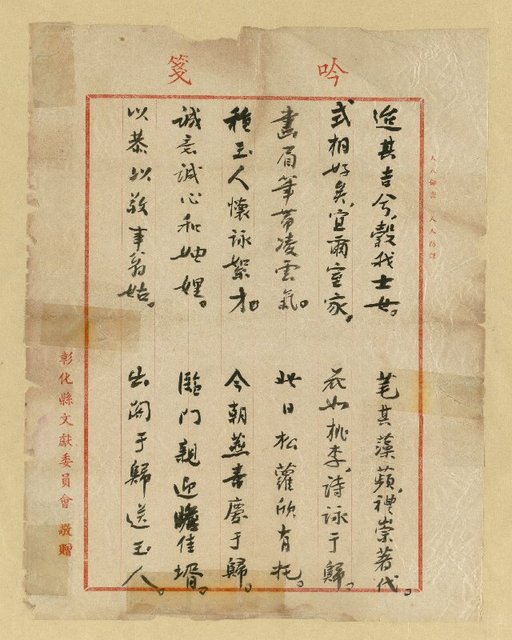 吟箋
迨其吉兮、穀我士女。
芼其藻蘋、禮崇著代。
式相好矣、宜爾室家。
花如桃李、詩詠于歸。
畫眉筆帶凌雲氣。
此日松蘿欣有托。
種玉人懷詠絮才。
今朝燕喜慶于歸。
誠意誠心和妯娌。
臨門親迎瞻佳壻。
以恭以敬事翁姑。
出閣于歸送玉人。
彰化縣文獻委員會 敬贈